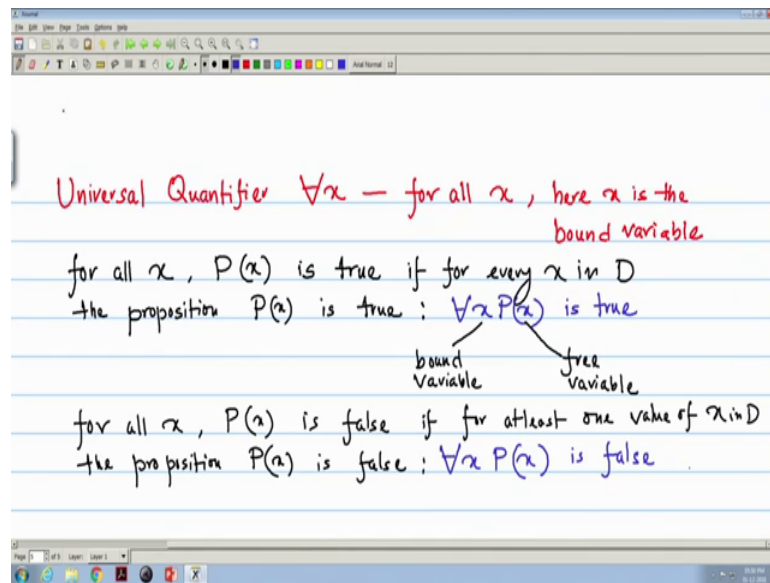 Journal
File Edit View Page Tools Options Help
Arial Normal 12
Universal Quantifier ∀x — for all x, here x is the
bound variable
for all x, P(x) is true if for every x in D
the proposition P(x) is true : ∀x P(x) is true
bound free
variable variable
for all x, P(x) is false if for atleast one value of x in D
the proposition P(x) is false : ∀x P(x) is false
Page 5 of 5 Layer: Layer 1